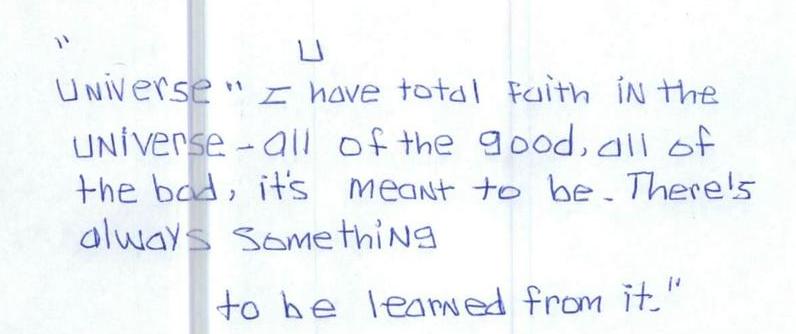 "
U
UNiverse" I have total Faith iN the
UNiverse - all of the good, all of
the bad, it's meaNt to be. There's
always SomethiNg
to be learNed from it."